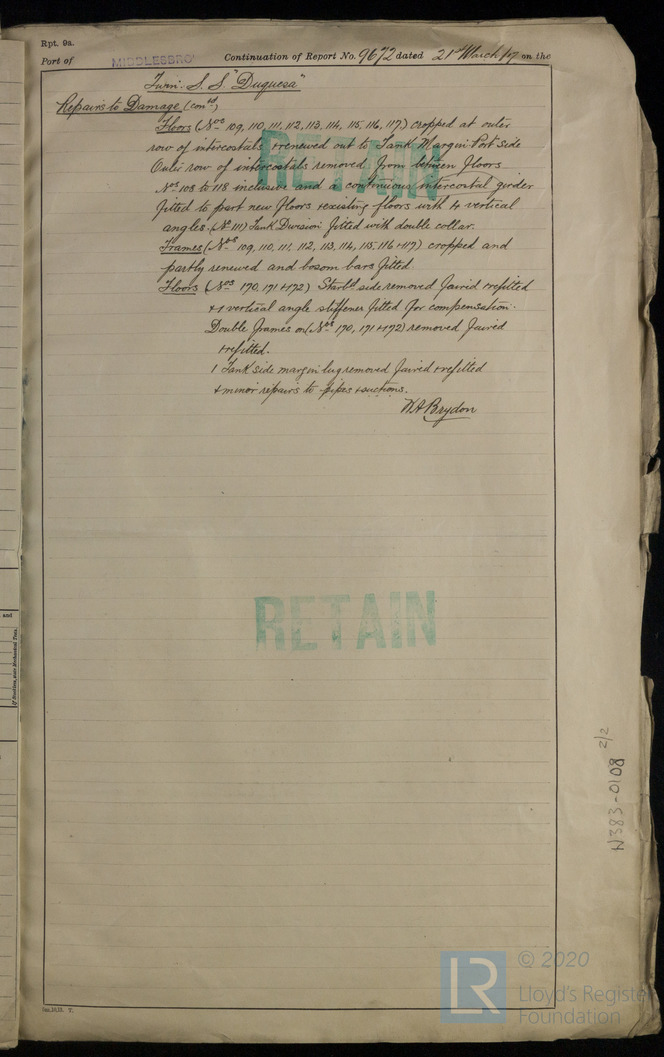 Rpt. 9a.
Port of MIDDLESBRO' Continuation of Report No. 9672 dated 21st March 17 on the
Twin. S. S "Duquesa"
Repairs to Damage (contd)
Floors (Nos 109, 110, 111, 112, 113, 114, 115, 116, 117,) cropped at outer
row of intercostals & renewed out to Tank Margin Port side
Outer row of intercostals removed from between floors
Nos 108 to 118 inclusive and a continuous intercostal girder
fitted to part new floors & existing floors with 4 vertical
angles. (No 111) Tank Division fitted with double collar.
Frames (Nos 109, 110, 111, 112, 113, 114, 115, 116 & 117) cropped and
partly renewed and bosom bars fitted.
Floors (Nos 170, 171 & 172) Starbd side removed faired & refitted
& 1 vertical angle stiffener fitted for compensation.
Double frames on (Nos 170, 171 & 172) removed faired
& refitted.
1 Tank side margin lug removed faired & refitted
& minor repairs to pipes & suctions.
W A Brydon
RETAIN
RETAIN
and
N383-0108 2/2
LR
© 2020
Lloyd's Register
Foundation